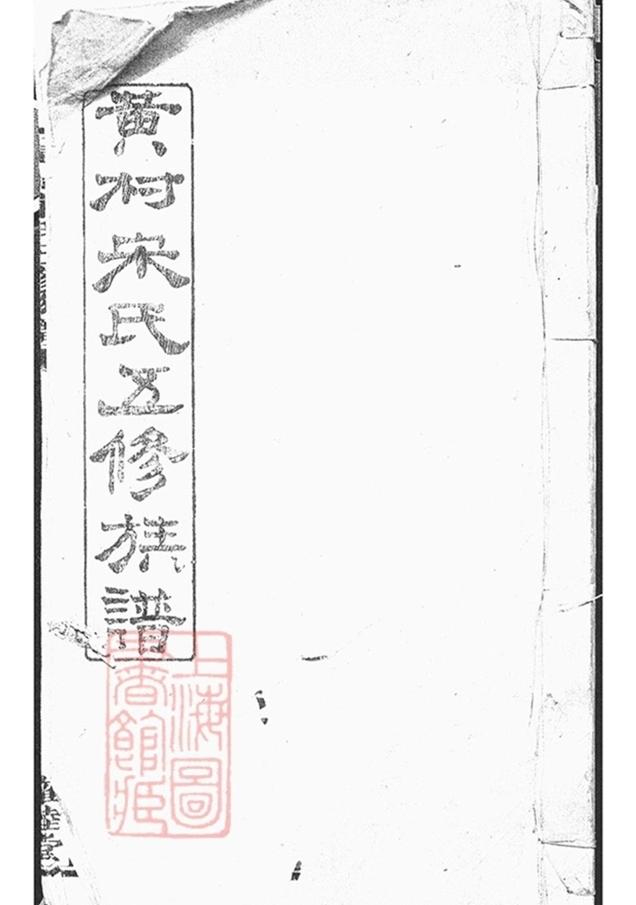 黄村宋氏五修族譜
上海圖
書館藏